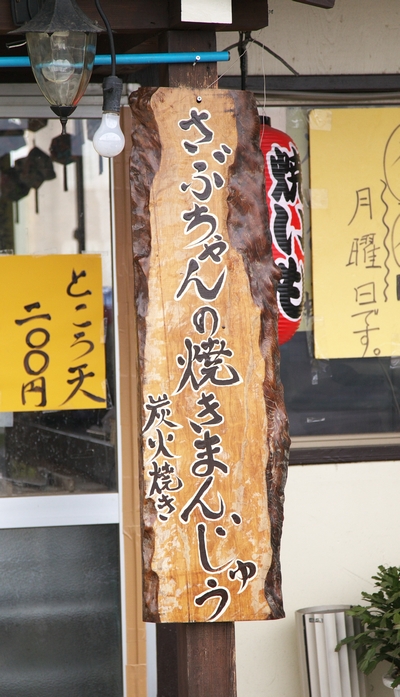 さぶちゃんの焼きまんじゅう
炭火焼き
焼いも
月曜日です。
ところ天
二〇〇円